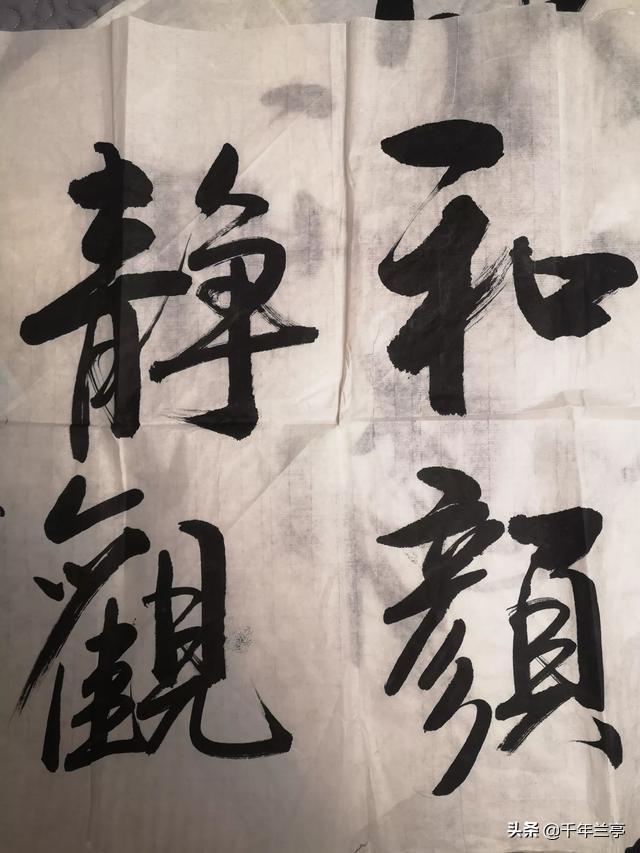 和顏
静觀
头条 @千年兰亭